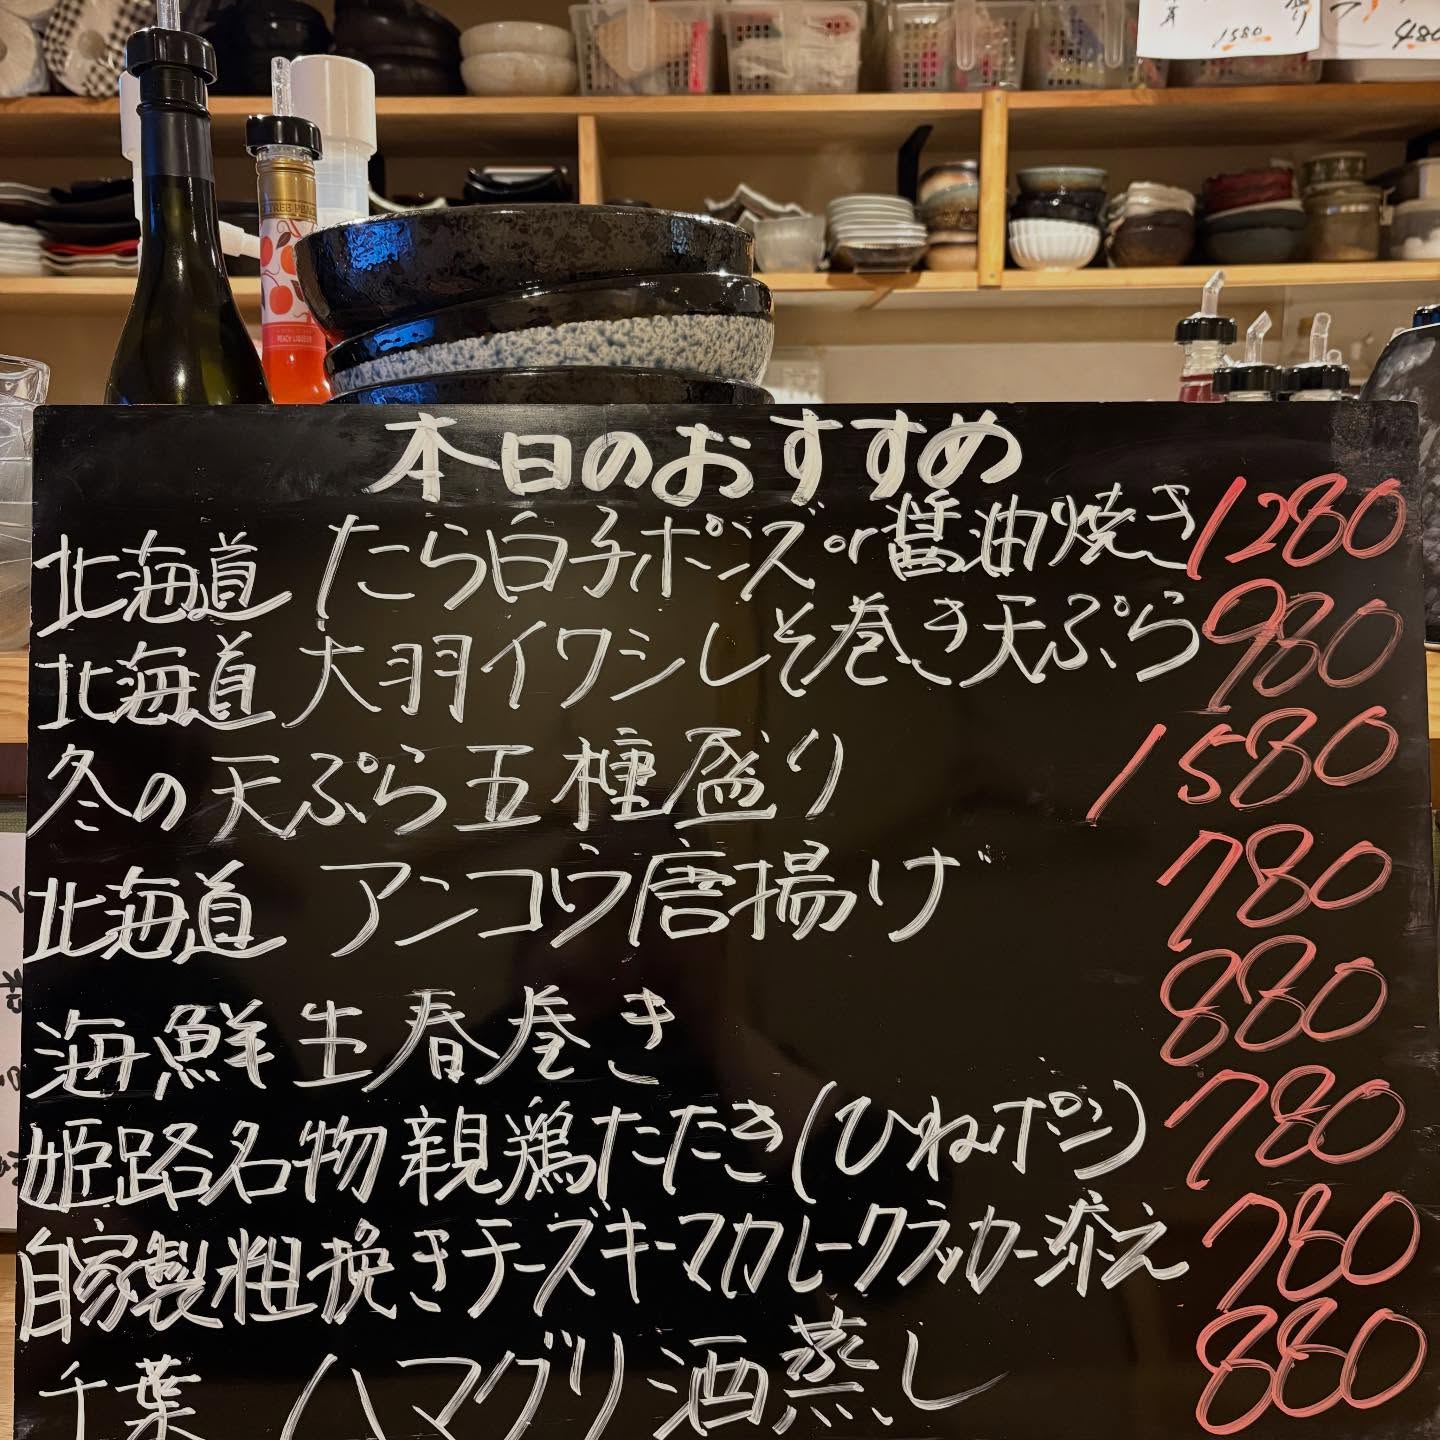 1580
480
TREE PEACH
PEACH LIQUEUR
本日のおすすめ
北海道 たら白子ポンズor醤油焼き 1280
北海道 大羽イワシしそ巻き天ぷら 980
冬の天ぷら五種盛り 1580
北海道 アンコウ唐揚げ 780
海鮮生春巻き 880
姫路名物親鶏たたき(ひねポン) 780
自家製粗挽きチーズキーマカレークラッカー添え 780
千葉 ハマグリ酒蒸し 880